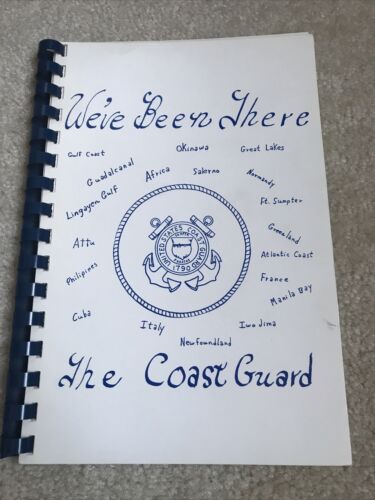 We've Been There
Gulf Coast
Okinawa
Great Lakes
Guadalcanal
Africa
Salerno
Normandy
Lingayen Gulf
Ft. Sumpter
Attu
Greenland
Atlantic Coast
Philipines
France
Manila Bay
Cuba
Italy
Iwo Jima
Newfoundland
UNITED STATES COAST GUARD
1790
The Coast Guard